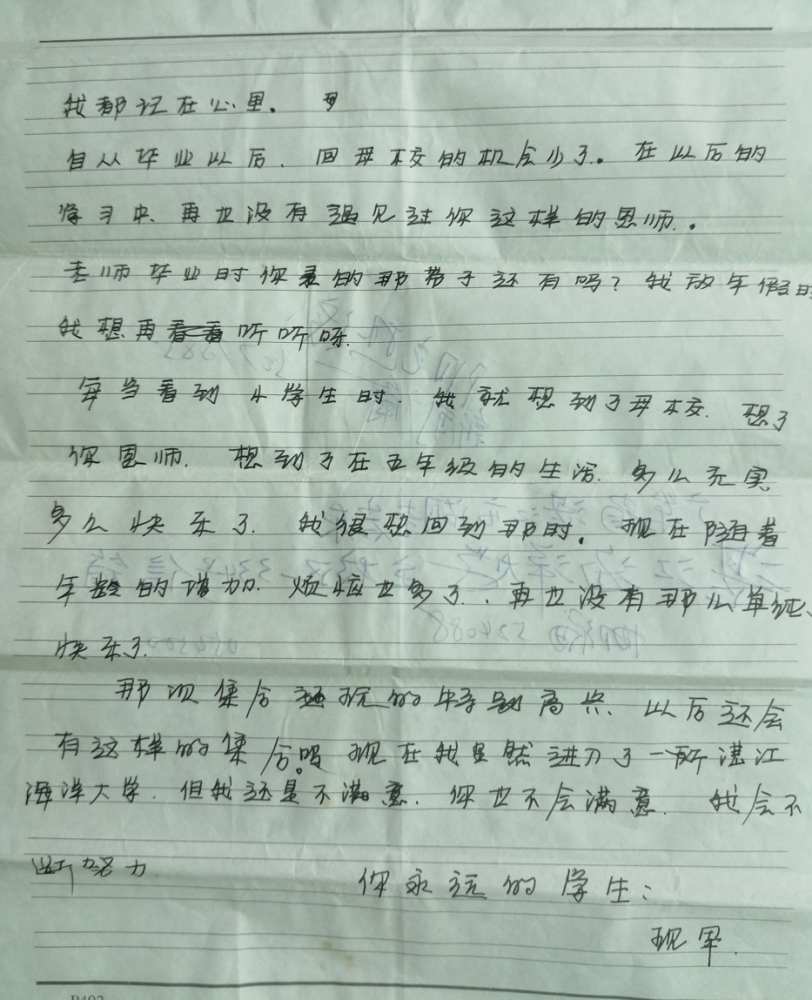 我都记在心里。
自从毕业以后、回母校的机会少了。在以后的
学习中、再也没有遇见过你这样的恩师。
老师毕业时你录的那带子还有吗？我放年假时
我想再听听呀.
每当看到小学生时. 我就想到了母校. 想了
你恩师. 想到了在五年级的生活. 多么充实
多么快乐了. 我很想回到那时。现在随着
年龄的增加. 烦恼也多了、再也没有那么单纯、
快乐了.
那次集合还玩的特别高兴、以后还会
有这样的集合吗。现在我虽然进入了一所湛江
海洋大学. 但我还是不满意. 你也不会满意. 我会不
断努力
你永远的学生：
现军.
P402